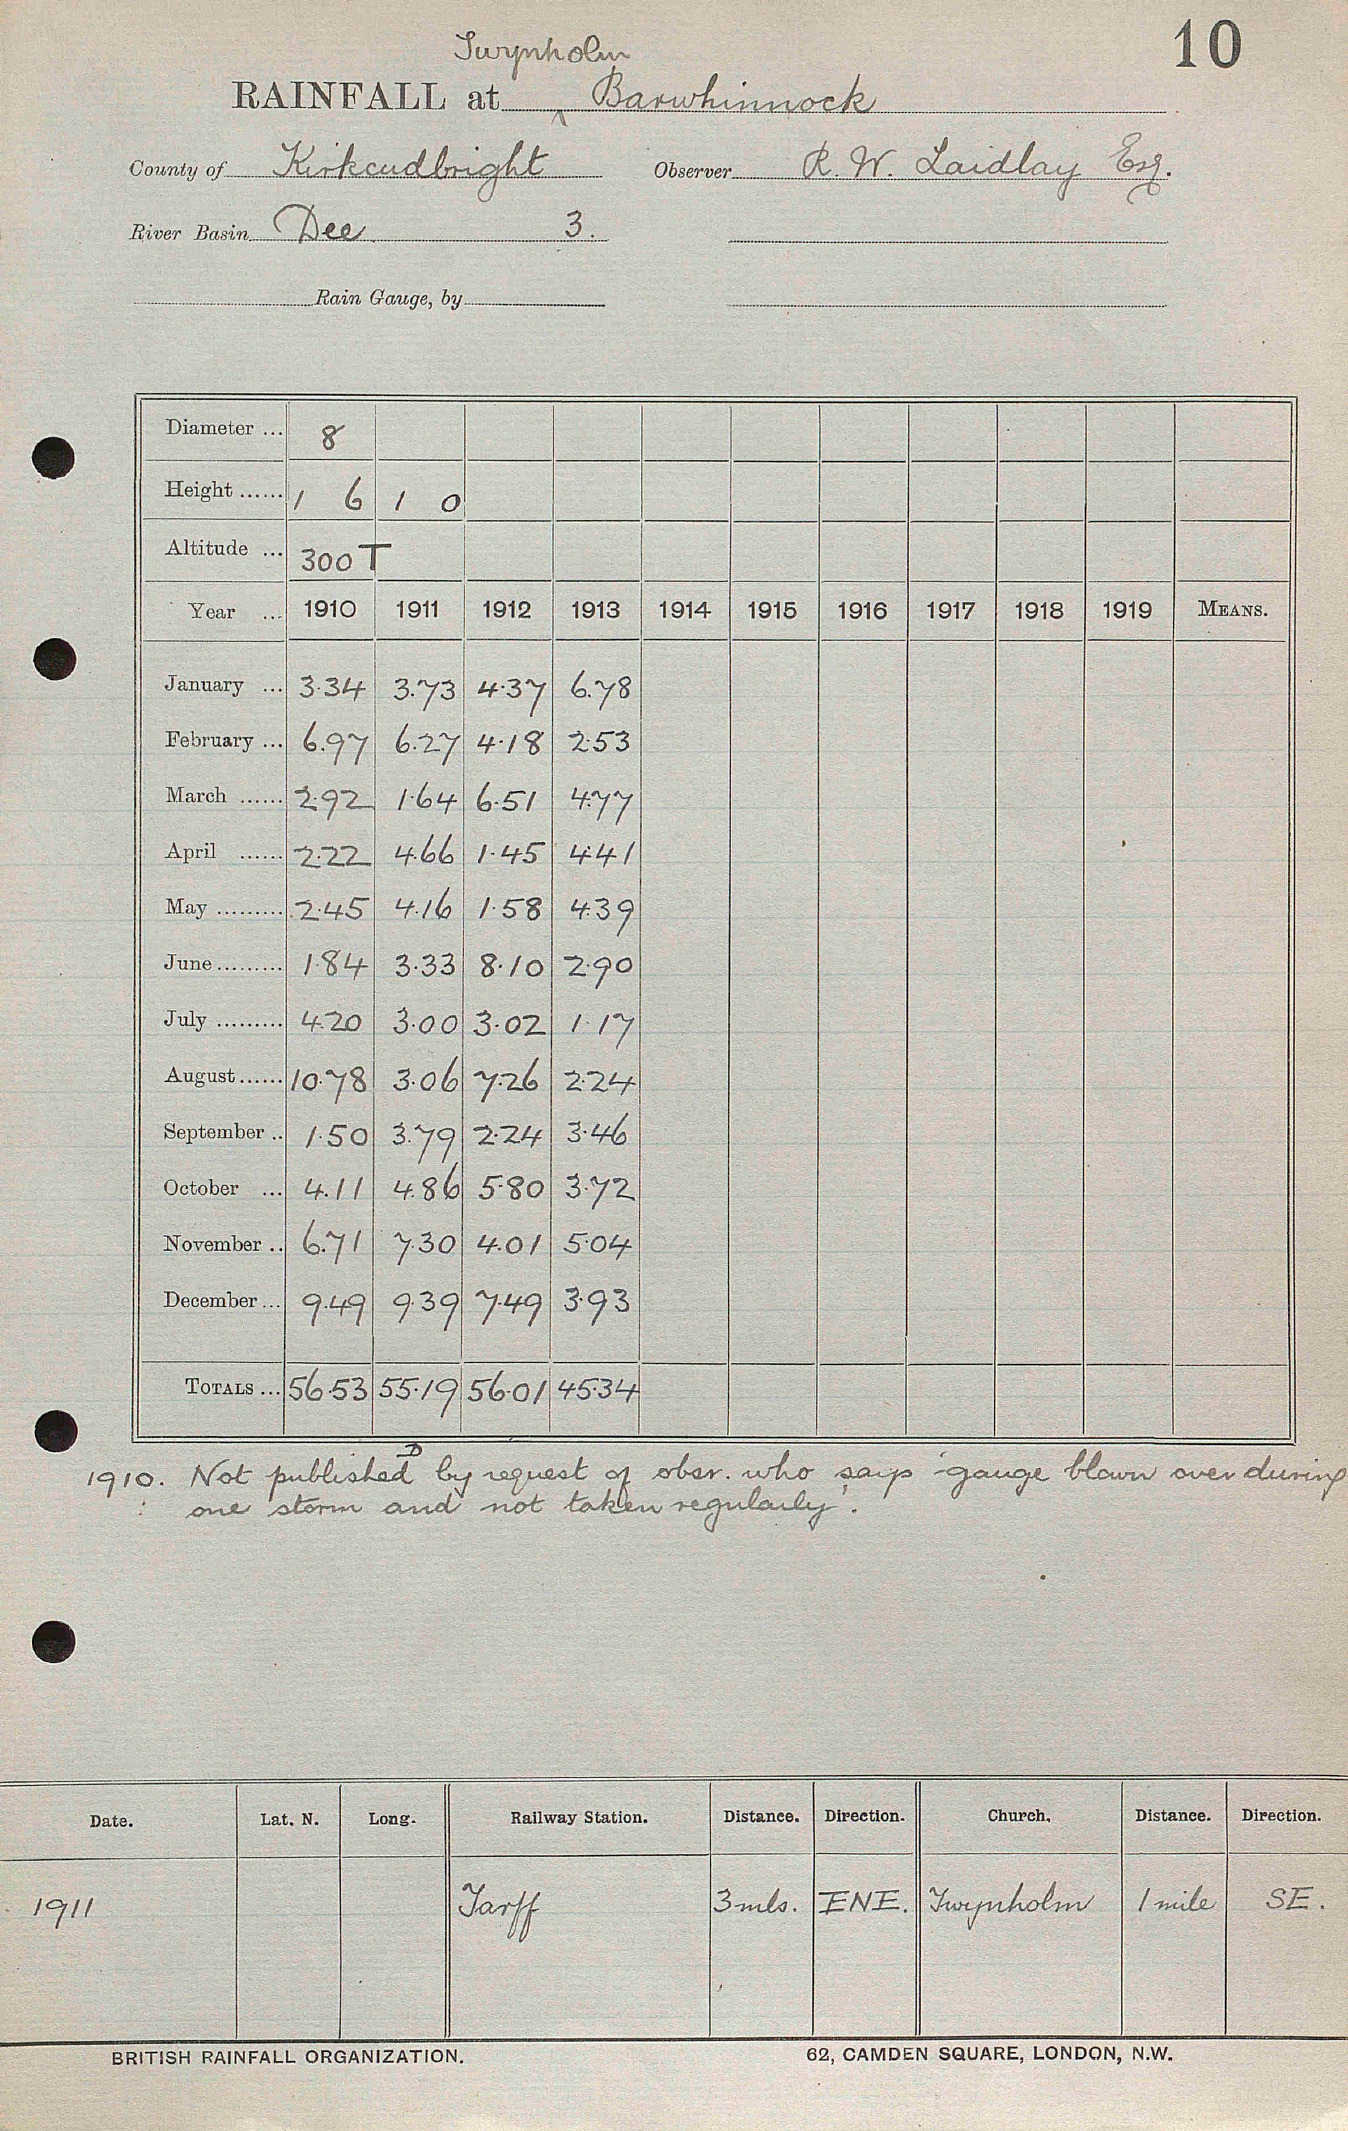 10
Twynholm
RAINFALL at Barwhinnock
County of Kirkcudbright Observer R. W. Laidlay Esq.
River Basin Dee 3.
Rain Gauge, by
Diameter ... 8
Height ...... 1 6 1 0
Altitude ... 300 T
Year ... 1910 1911 1912 1913 1914 1915 1916 1917 1918 1919 MEANS.
January ... 3.34 3.73 4.37 6.78
February ... 6.97 6.27 4.18 2.53
March ...... 2.92 1.64 6.51 4.77
April ...... 2.22 4.66 1.45 4.41
May ......... 2.45 4.16 1.58 4.39
June ......... 1.84 3.33 8.10 2.90
July ......... 4.20 3.00 3.02 1.17
August ...... 10.78 3.06 7.26 2.24
September .. 1.50 3.79 2.24 3.46
October ... 4.11 4.86 5.80 3.72
November .. 6.71 7.30 4.01 5.04
December ... 9.49 9.39 7.49 3.93
TOTALS ... 56.53 55.19 56.01 45.34
D
1910. Not published by request of obsr. who says 'gauge blown over during
one storm and not taken regularly'.
Date. Lat. N. Long. Railway Station. Distance. Direction. Church. Distance. Direction.
1911 Tarff 3 mls. ENE. Twynholm 1 mile SE.
BRITISH RAINFALL ORGANIZATION. 62, CAMDEN SQUARE, LONDON, N.W.